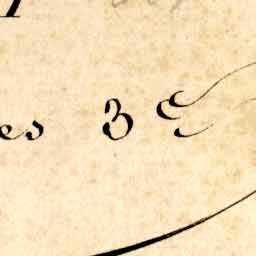 es 3 e